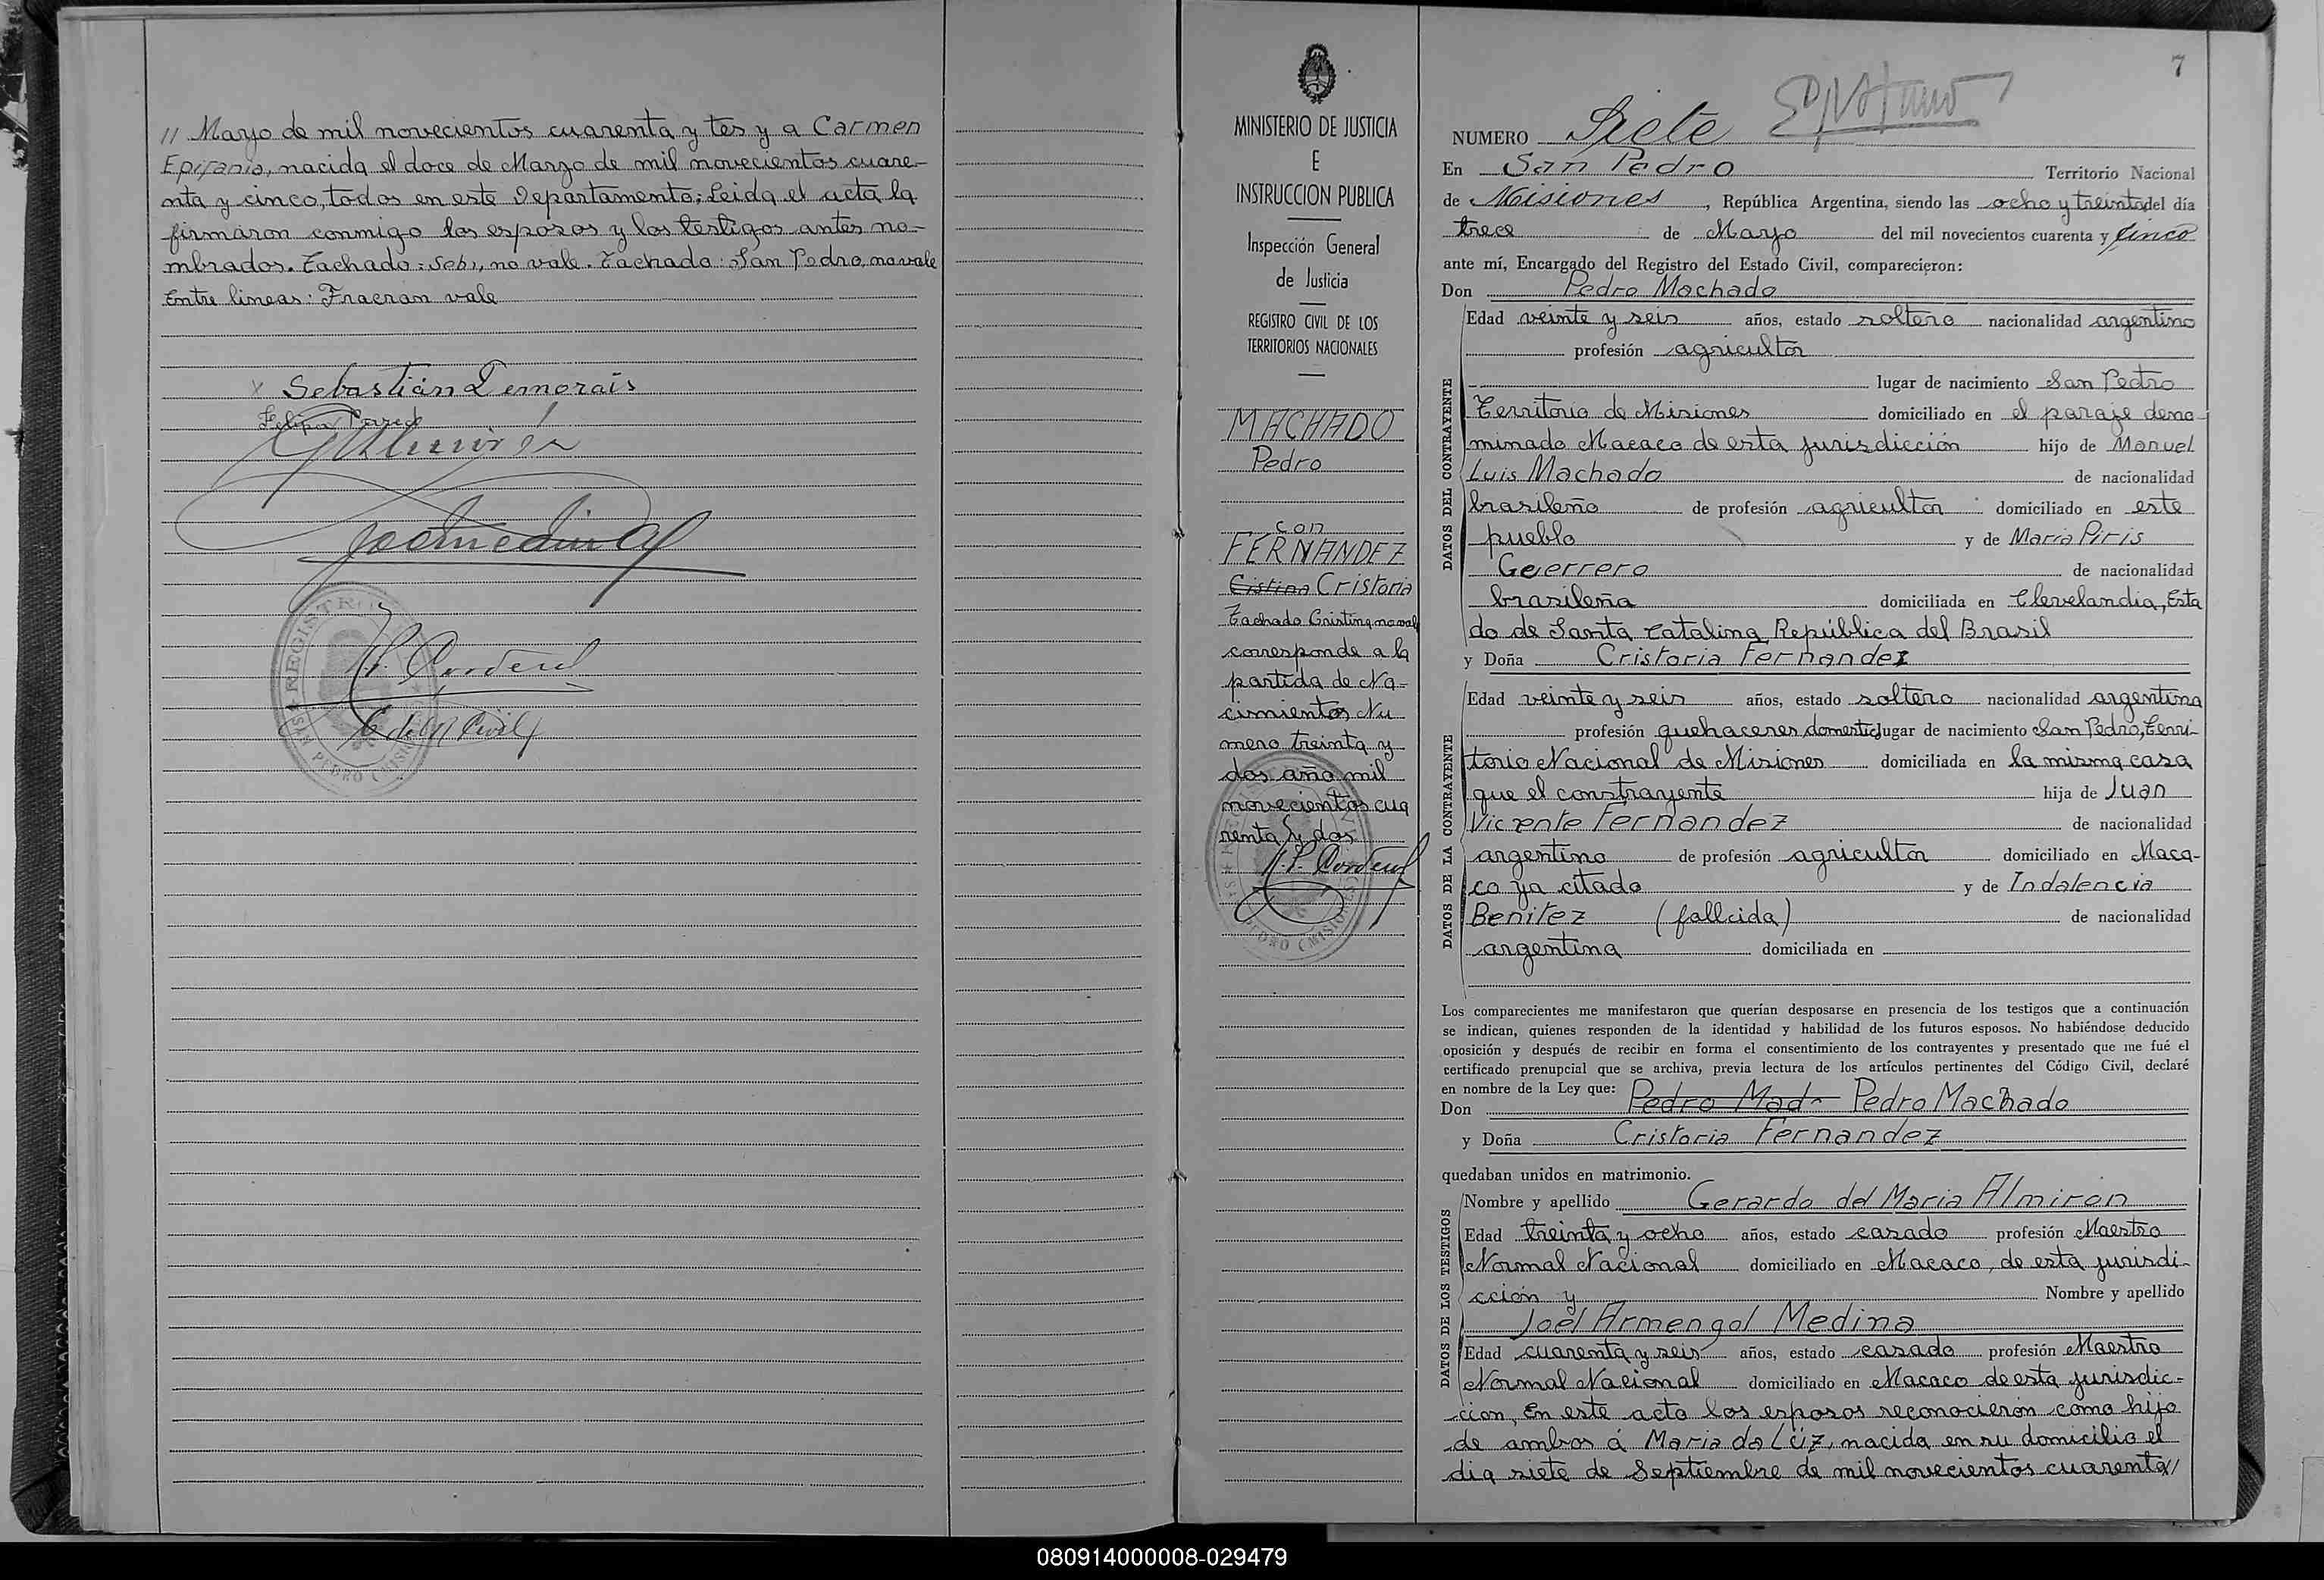 // Mayo de mil novecientos cuarenta y tes y a Carmen
Epifania, nacida el doce de Marzo de mil novecientos cuare-
nta y cinco, todos en este Departamento; Leida el acta la
firmaron conmigo los esposos y los testigos antes no-
mbrados. Tachado: Seb, no vale. Tachado: San Pedro, no vale
Entre lineas: Fracran vale
x Sebastián Demorais
P. Corderol
E. del R. Civil
REGISTRO
SAN PEDRO (MISIONES)
MINISTERIO DE JUSTICIA
E
INSTRUCCION PUBLICA
Inspección General
de Justicia
REGISTRO CIVIL DE LOS
TERRITORIOS NACIONALES
MACHADO
Pedro
con
FERNANDEZ
Cistina Cristoria
Tachado Cristina no vale
corresponde a la
partida de Na-
cimientos Nu
mero treinta y
dos año mil
novecientos cua
renta y dos
7
NUMERO Siete
En San Pedro Territorio Nacional
de Misiones, República Argentina, siendo las ocho y treinta del día
trece de Mayo del mil novecientos cuarenta y cinco
ante mí, Encargado del Registro del Estado Civil, comparecieron:
Don Pedro Machado
DATOS DEL CONTRAYENTE
Edad veinte y seis años, estado soltero nacionalidad argentino
profesión agricultor
lugar de nacimiento San Pedro
Territorio de Misiones domiciliado en el paraje deno-
minado Macaco de esta jurisdicción hijo de Manuel
Luis Machado de nacionalidad
brasileño de profesión agricultor domiciliado en este
pueblo y de Maria Piris
Guerrero de nacionalidad
brasileña domiciliada en Clevelandia, Esta
do de Santa Catalina República del Brasil
y Doña Cristoria Fernandez
DATOS DE LA CONTRAYENTE
Edad veinte y seis años, estado soltera nacionalidad argentina
profesión quehaceres domestic lugar de nacimiento San Pedro, Terri-
torio Nacional de Misiones domiciliada en la misma casa
que el constrayente hija de Juan
Vicente Fernandez de nacionalidad
argentino de profesión agricultor domiciliado en Maca-
co ya citado y de Indalencia
Benitez (fallcida) de nacionalidad
argentina domiciliada en
Los comparecientes me manifestaron que querían desposarse en presencia de los testigos que a continuación
se indican, quienes responden de la identidad y habilidad de los futuros esposos. No habiéndose deducido
oposición y después de recibir en forma el consentimiento de los contrayentes y presentado que me fué el
certificado prenupcial que se archiva, previa lectura de los artículos pertinentes del Código Civil, declaré
en nombre de la Ley que:
Don Pedro Mad- Pedro Machado
y Doña Cristoria Fernandez
quedaban unidos en matrimonio.
DATOS DE LOS TESTIGOS
Nombre y apellido Gerardo del Maria Almiron
Edad treinta y ocho años, estado casado profesión Maestro
Normal Nacional domiciliado en Macaco, de esta jurisdi-
cción y Nombre y apellido
Joel Armengol Medina
Edad cuarenta y seis años, estado casado profesión Maestro
Normal Nacional domiciliado en Macaco de esta jurisdic-
cion, En este acto los esposos reconocieron como hijo
de ambos á Maria da Luz, nacida en su domicilio el
dia siete de Septiembre de mil novecientos cuarenta//
080914000008-029479